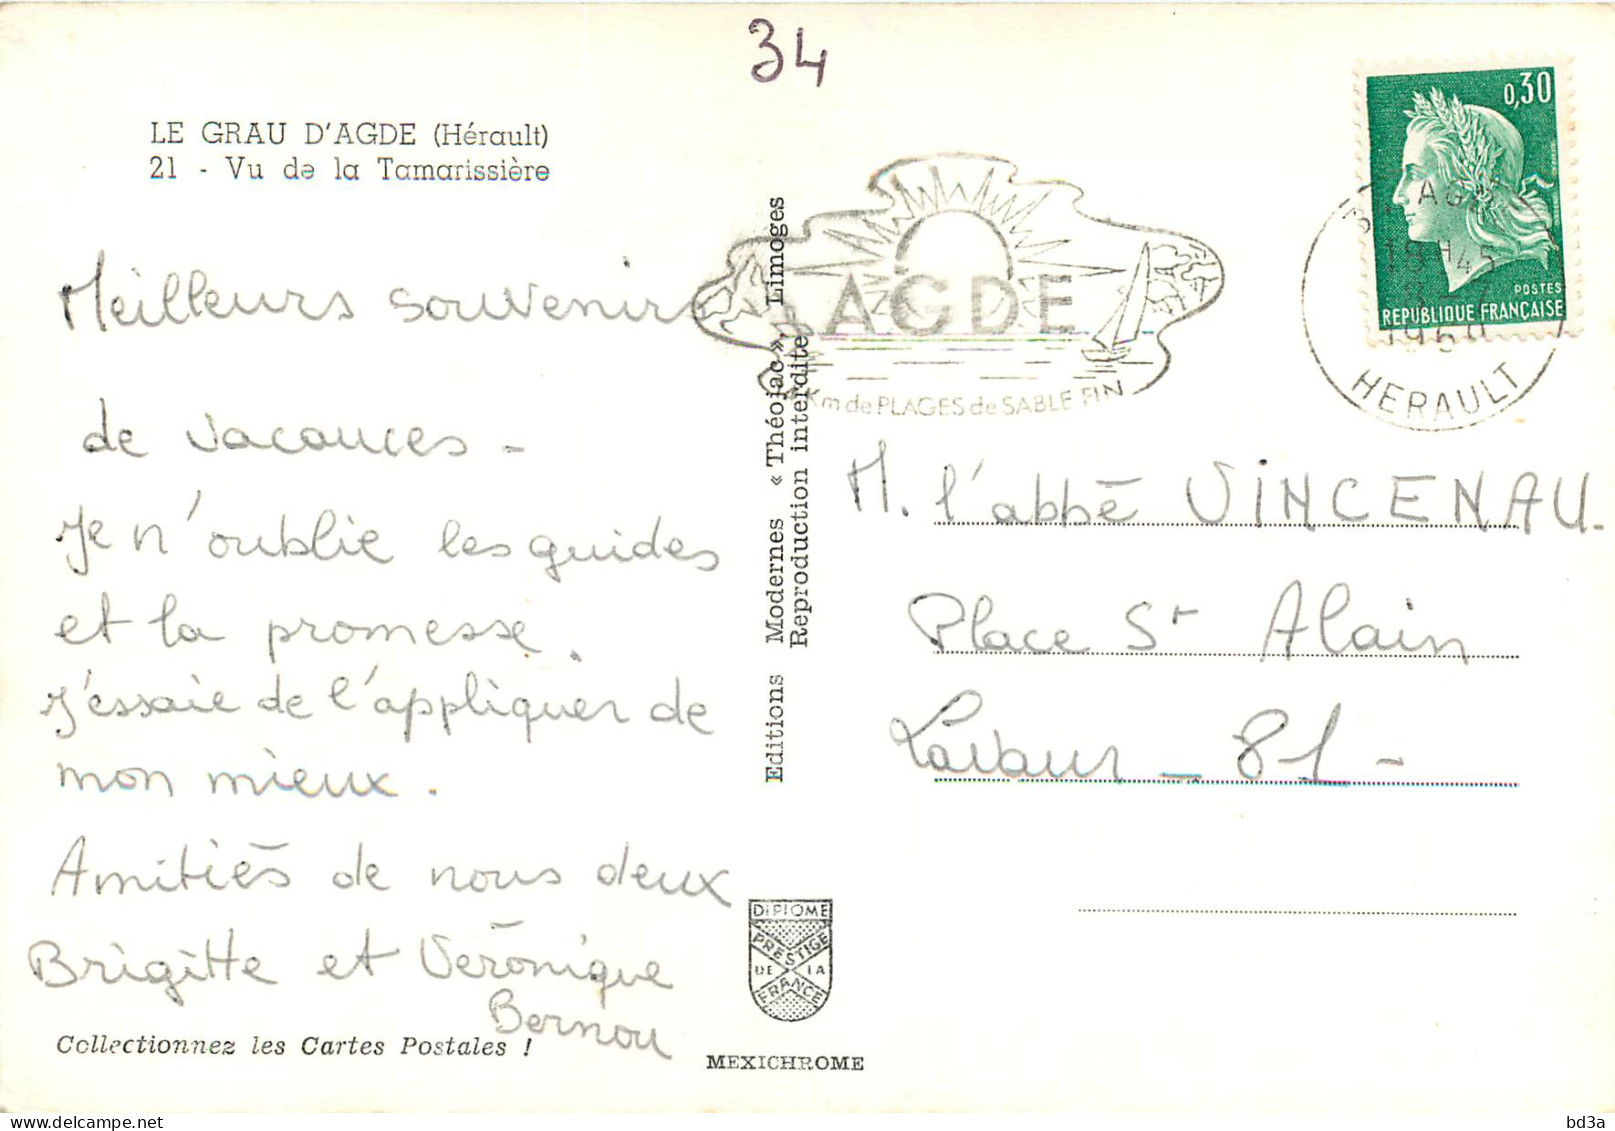 34
LE GRAU D'AGDE (Hérault)
21 - Vu de la Tamarissière
Meilleurs souvenirs
de vacances -
Je n'oublie les guides
et la promesse.
J'essaie de l'appliquer de
mon mieux.
Amitiés de nous deux
Brigitte et Véronique
Bernou
Collectionnez les Cartes Postales !
Editions Modernes « Théojac », Limoges
Reproduction interdite
DIPLOME
PRESTIGE
DE LA
FRANCE
MEXICHROME
AGDE
Km de PLAGES de SABLE FIN
0,30
POSTES
REPUBLIQUE FRANÇAISE
AGDE
HERAULT
M. l'abbé VINCENAU.
Place St Alain
Lavaur - 81 -
delcampe.net
bd3a